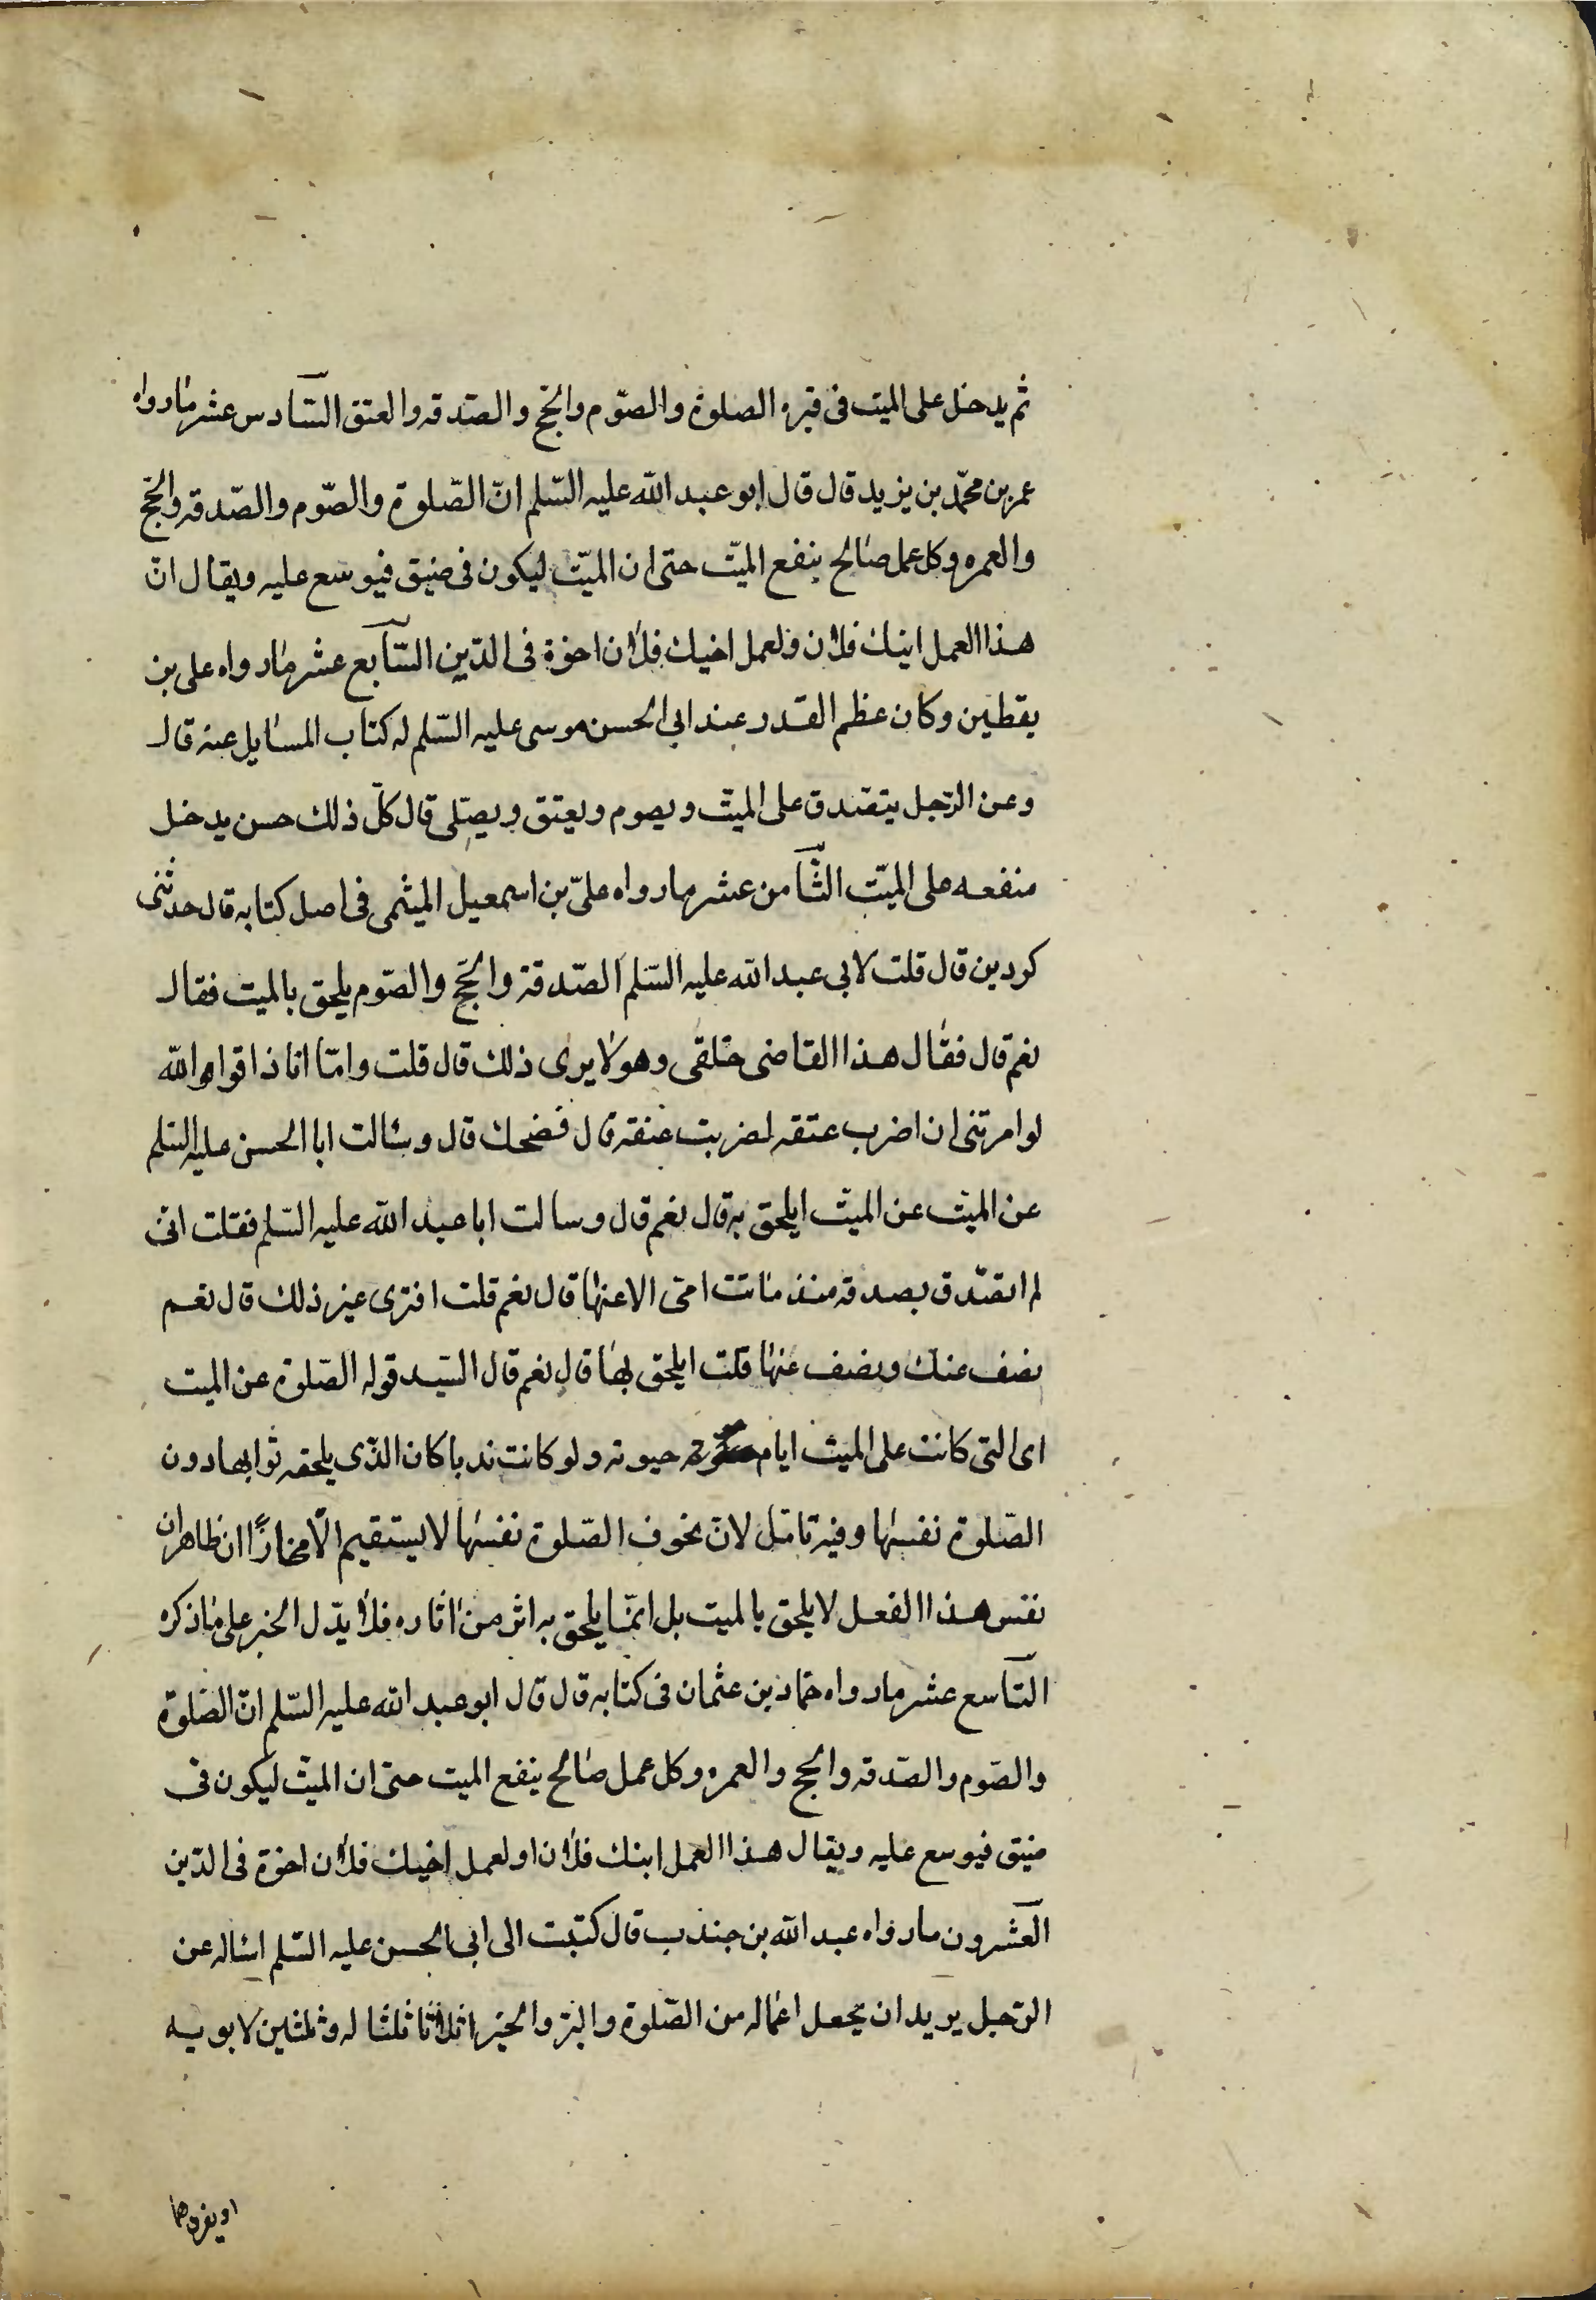 ثم يدخل على الميت فى قبره الصلوة والصوم والحج والصدقه والعتق السادس عشر مارواه
عمر بن محمد بن يزيد قال قال ابو عبد الله عليه السلم ان الصلوة والصوم والصدقه والحج
والعمره وكل عمل صالح ينفع الميت حتى ان الميت ليكون فى ضيق فيوسع عليه ويقال ان
هذا العمل ابنك فلان ولعمل اخيك فلان اخوة فى الدين السابع عشر مارواه على بن
يقطين وكان عظم القدر عند ابى الحسن موسى عليه السلم له كتاب المسايل عنه قال
وعن الرجل يتصدق على الميت ويصوم ويعتق ويصلى قال كل ذلك حسن يدخل
منفعه على الميت الثامن عشر مارواه على بن اسمعيل الميثمى فى اصل كتابه قال حدثنى
كردين قال قلت لابى عبد الله عليه السلم الصدقة والحج والصوم يلحق بالميت فقال
نعم قال فقال هذا القاضى خلقى وهو لا يرى ذلك قال قلت واما انا ذا قوالله
لو امرتنى ان اضرب عنقه لضربت عنقه قال فضحك قال وسالت ابا الحسن عليه السلم
عن الميت عن الميت ايلحق به قال نعم قال وسالت ابا عبد الله عليه السلم فقلت انى
لم اتصدق بصدقه منذ ماتت امى الا عنها قال نعم قلت افترى غير ذلك قال نعم
نصف عنك ونصف عنها قلت ايلحق بها قال نعم قال السيد قوله الصلوة عن الميت
اى التى كانت على الميت ايام حيوته ولو كانت ندبا كان الذى يلحقه ثوابها دون
الصلوة نفسها وفيه تامل لان لحوق الصلوة نفسها لا يستقيم الا مجازا ان ظاهر ان
نفس هذا الفعل لا يلحق بالميت بل انما يلحق به اثر من اثاره فلا يدل الخبر على ماذكره
التاسع عشر مارواه حماد بن عثمان فى كتابه قال قال ابو عبد الله عليه السلم ان الصلوة
والصوم والصدقه والحج والعمره وكل عمل صالح ينفع الميت حتى ان الميت ليكون فى
ضيق فيوسع عليه ويقال هذا العمل ابنك فلان اولعمل اخيك فلان اخوة فى الدين
العشرون مارواه عبد الله بن جندب قال كتبت الى ابى الحسن عليه السلم اساله عن
الرجل يريد ان يجعل اعماله من الصلوة والبر والخير اثلاثا ثلثا له وثلثين لابويه
او يفردهما